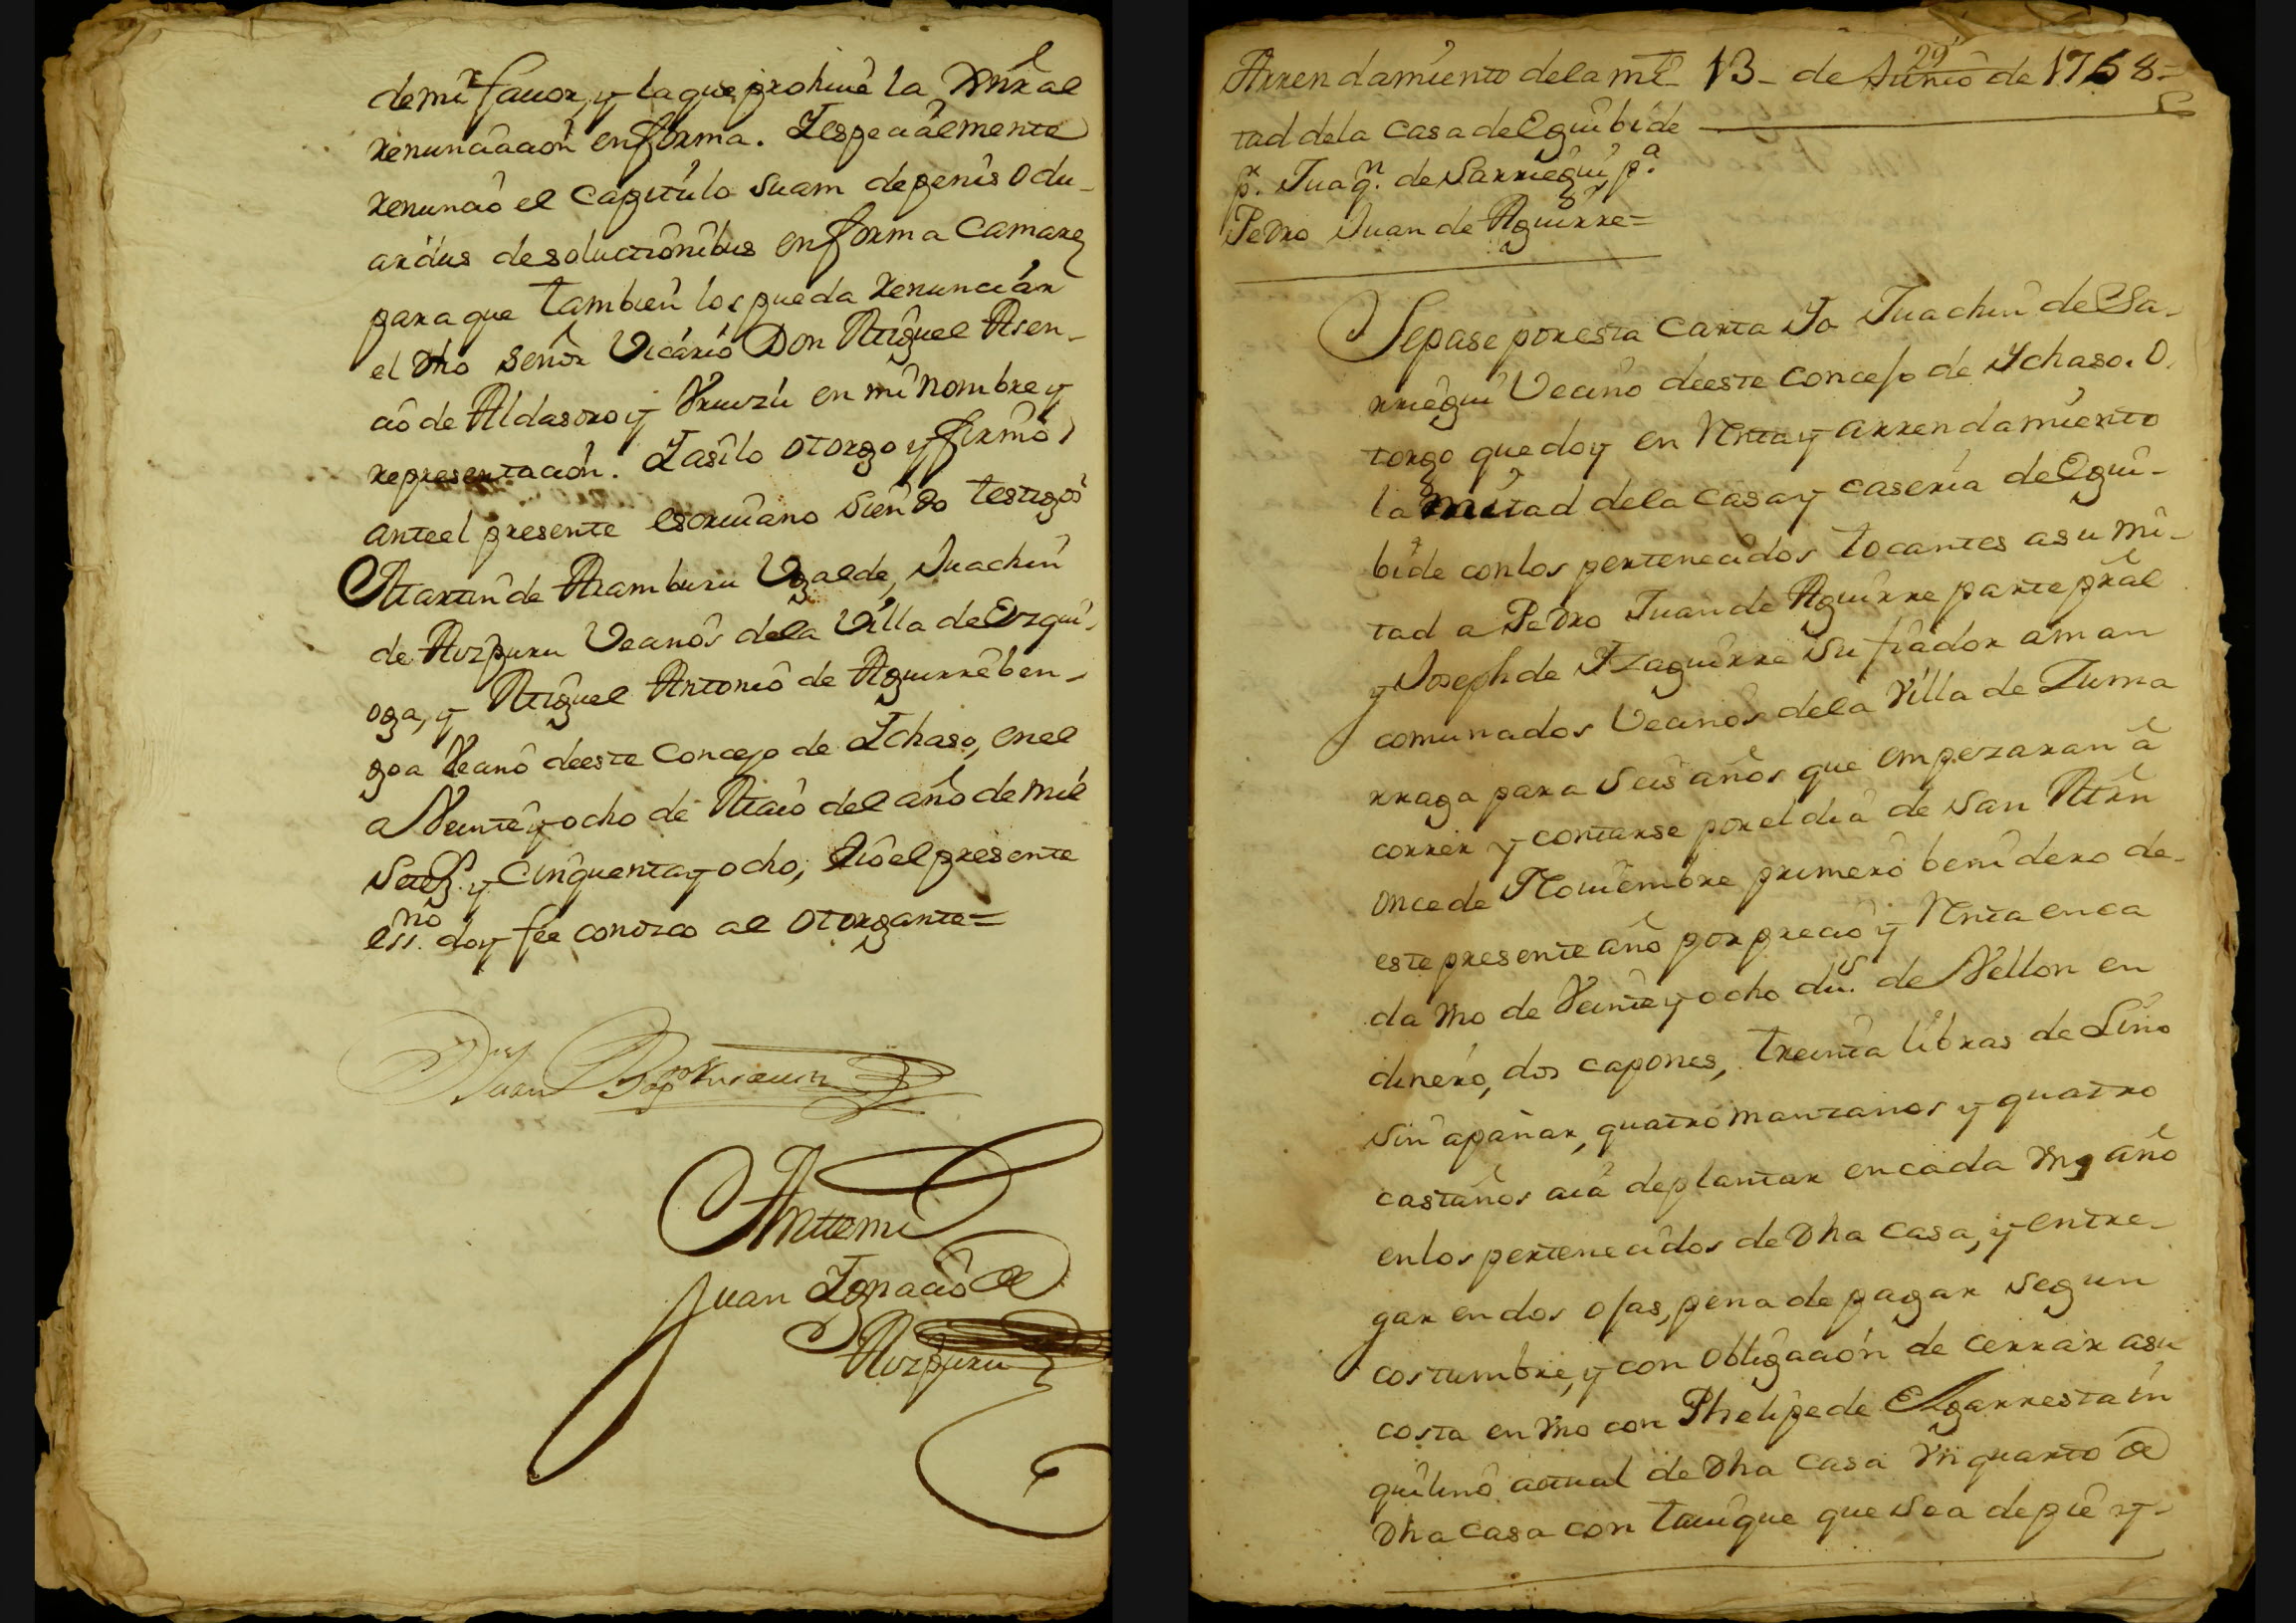 de mi favor, y la que prohive la Gnral
renunciacion en forma. Y especialmente
renuncio el capitulo suam de penis Odu-
ardus de solucionibus en forma Camare
para que tambien los pueda renunciar
el dho señor Vicario Don Miguel Asen-
cio de Aldasoro y Vruzu en mi nombre y
representacion. Y asi lo otorgo y firmo
ante el presente escrivano siendo testigos
Martin de Aramburu Ugalde, Juachin
de Aizpuru Vecinos dela Villa de Ezqui-
oga, y Miguel Antonio de Aguirreben-
goa Vecino de este Concejo de Ichaso, en el
a Veinte y ocho de Maio del año de mil
Setez.s y Cinquenta y ocho, Y io el presente
ess.no doy fee conozco al otorgante=
Juan Bap.ta
Antte mi
Juan Ygnacio de
Aizpuru
Arrendamiento dela mi- 13- de Junio de 1758=
29
tad dela casa de Eguibide
p.r Juaq.n de Sarriegui, p.a
Pedro Juan de Aguirre=
Sepase por esta carta Yo Juachin de Sa-
rriegui Vecino de este concejo de Ychaso. O
torgo que doy en Renta y arrendamiento
la mitad dela casa y caseria de Egui-
bide con los pertenecidos tocantes a su mi-
tad a Pedro Juan de Aguirre parte pral
y Joseph de Yzaguirre su fiador a man
comunados Vecinos dela Villa de Zuma
rraga para seis años que empezaran â
correr y contarse por el dia de San Mrn
once de Noviembre primero benidero de-
este presente año por precio y Renta en ca
da vno de Veinte y ocho du.s de Vellon en
dinero, dos capones, treinta libras de Lino
sin apañar, quatro manzanos y quatro
castaños aia de plantar en cada vno año
en los pertenecidos de dha casa, y entre-
gar en dos ojas, pena de pagar segun
costumbre, y con obligacion de cerrar a su
costa en vno con Phelipe de Elgarresta in
quilino actual de dha casa vn quarto de
dha casa con tavique que sea de pie y-